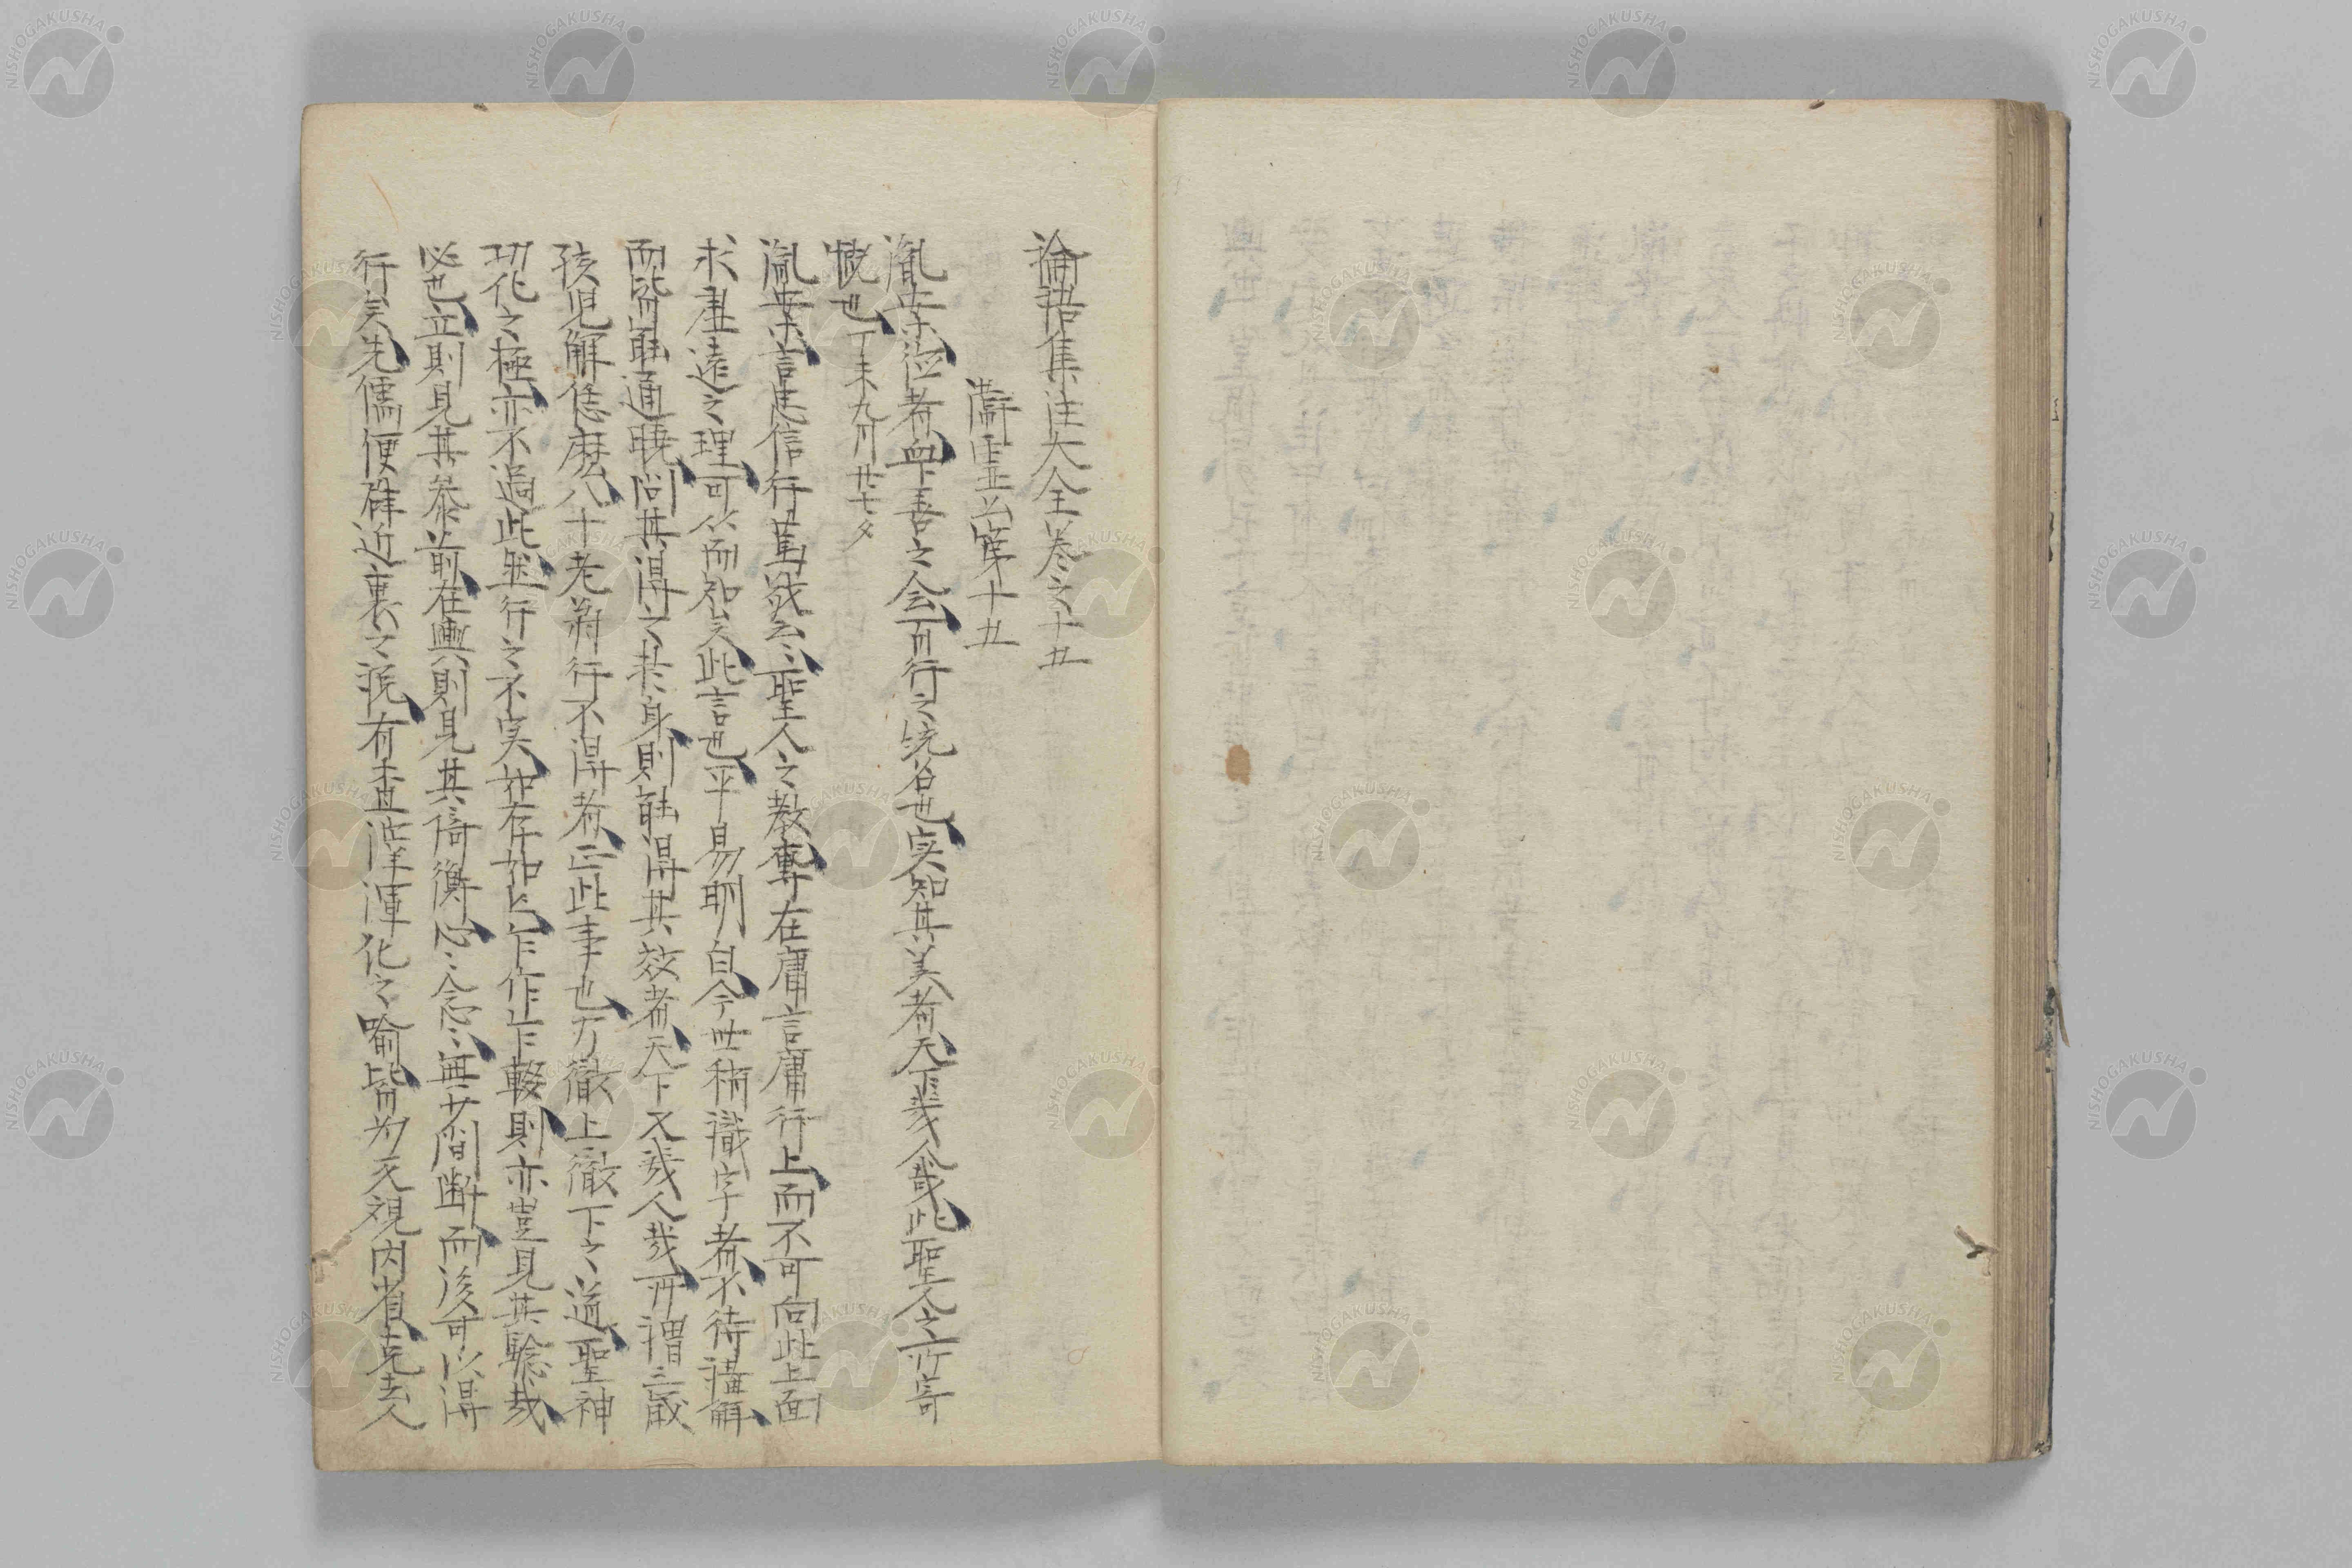 論語集注大全巻之十五
衛灵公第十五
胤案德者衆善之会而行之統名也実知其美者天下幾人哉此聖人之所寄
慨也丁未九月廿七夕
胤案言忠信行篤敬云〻聖人之教専在庸言庸行上而不可向此上面
求虚遠之理可以而知矣此言也平易明白今世稍識字者不待講解
而皆能通暁問其得之於身則能得其效者天下又幾人哉所謂三歳
孩児解恁麼八十老翁行不得者正此事也方徹上徹下之道聖神
功化之極亦不過此然行之不実若存如亡乍作乍輟則亦豈見其験哉
必也立則見其参前在輿則見其倚衡心〻念〻無少間断而後可以得
行矣先儒便辟近裏之說有査滓渾化之喩皆为反視内省克去人
NISHOGAKUSHA